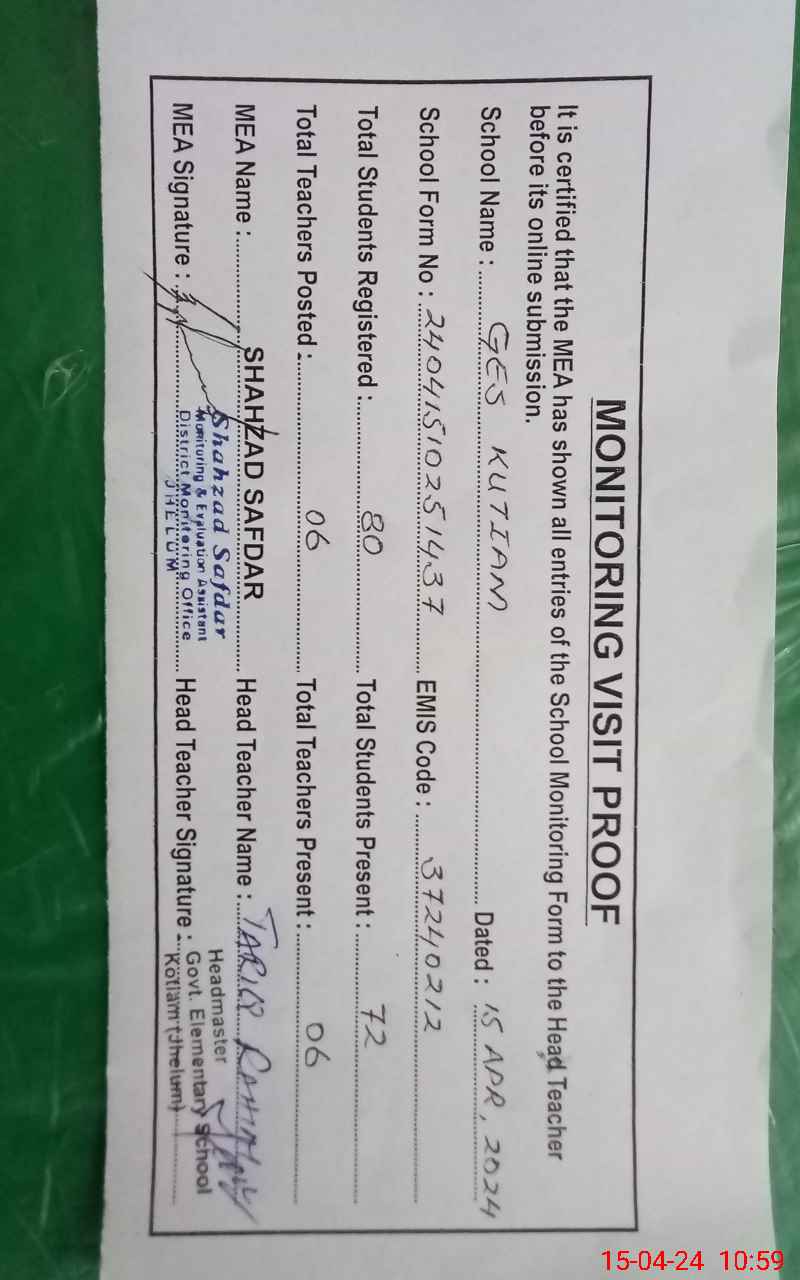 MONITORING VISIT PROOF
It is certified that the MEA has shown all entries of the School Monitoring Form to the Head Teacher
before its online submission.
School Name : GES KUTIAM Dated : 15 APR, 2024
School Form No : 24041510251437 EMIS Code : 37240212
Total Students Registered : 80 Total Students Present : 72
Total Teachers Posted : 06 Total Teachers Present : 06
MEA Name : SHAHZAD SAFDAR Head Teacher Name : TARIQ
MEA Signature : Head Teacher Signature :
Shahzad Safdar
Monitoring & Evaluation Assistant
District Monitoring Office
JHELUM
Headmaster
Govt. Elementary School
Kotiam (Jhelum)
15-04-24 10:59